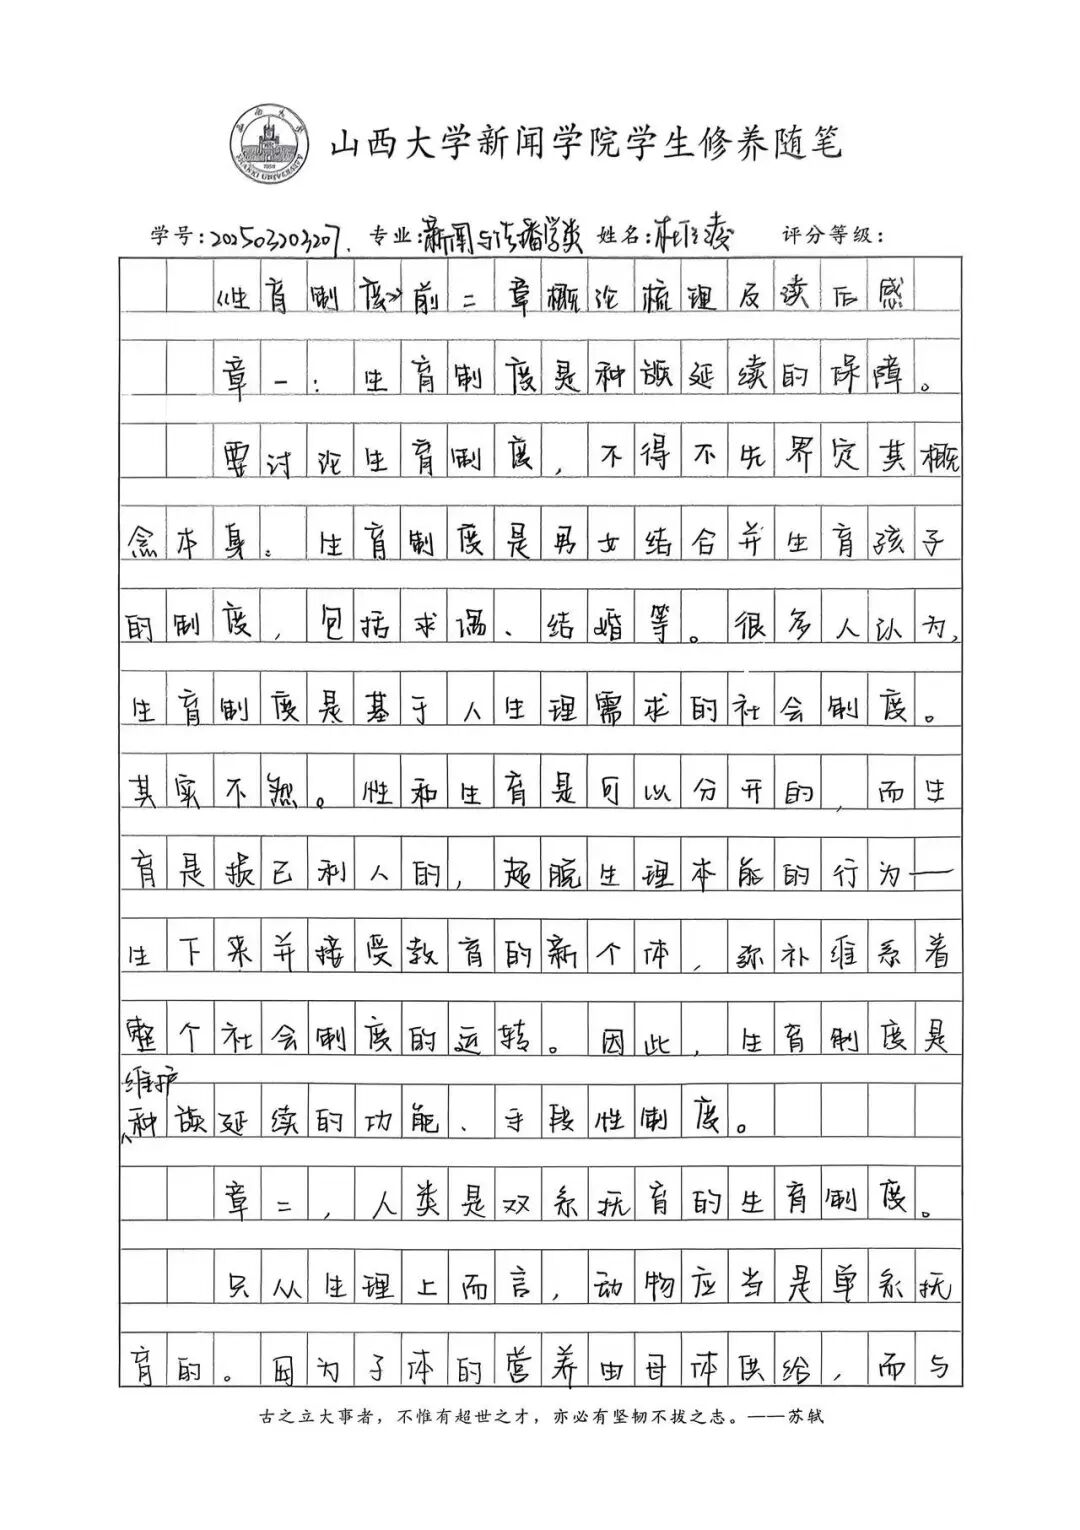 山西大学新闻学院学生修养随笔
学号:202503203207. 专业:新闻与传播学类 姓名:杜 凌 评分等级:
《生育制度》前二章概论梳理及读后感
章一:生育制度是种族延续的保障。
要讨论生育制度,不得不先界定其概
念本身。生育制度是男女结合并生育孩子
的制度,包括求偶、结婚等。很多人认为,
生育制度是基于人生理需求的社会制度。
其实不然。性和生育是可以分开的,而生
育是损己利人的,超脱生理本能的行为—
生下来并接受教育的新个体,弥补维系着
整个社会制度的运转。因此,生育制度是
维护
种族延续的功能、手段性制度。
章二,人类是双系抚育的生育制度。
只从生理上而言,动物应当是单系抚
育的。因为子体的营养由母体供给,而与
古之立大事者,不惟有超世之才,亦必有坚韧不拔之志。——苏轼